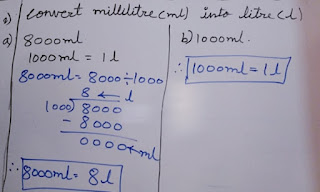 1) Convert millilitre (ml) into litre (l)
a) 8000ml
1000ml = 1l
8000ml = 8000÷1000
8 ← l
1000) 8000
- 8000
0000 ← ml
∴ 8000ml = 8l
b) 1000ml.
∴ 1000ml = 1l